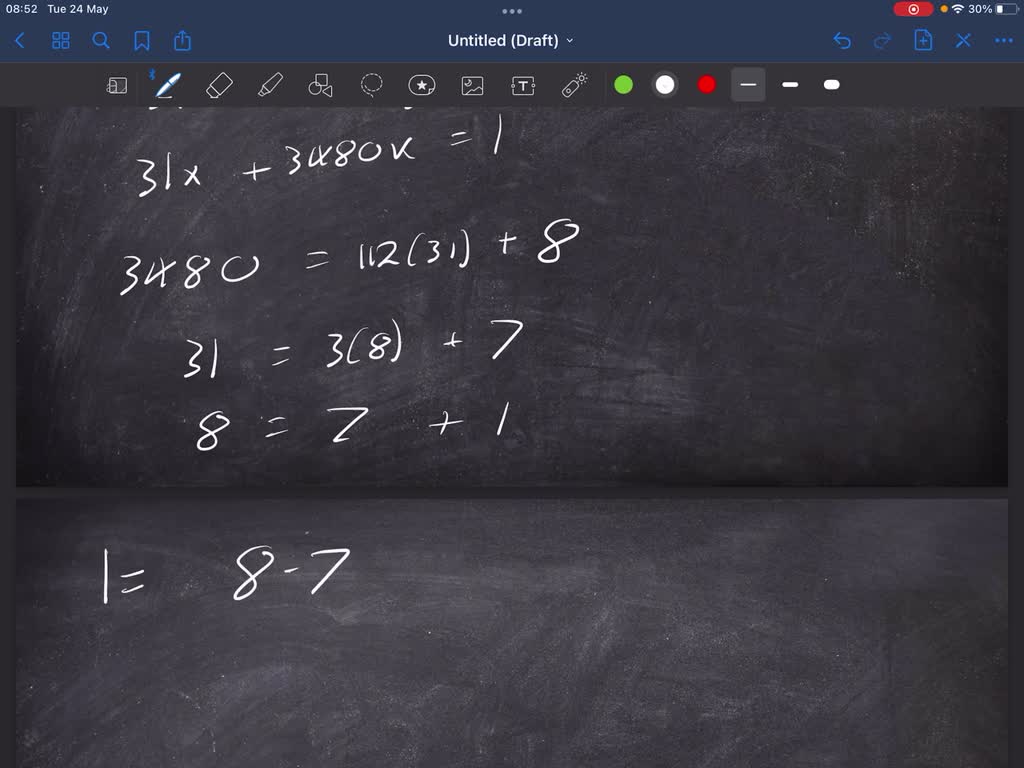 08:52 Tue 24 May 30%
Untitled (Draft)
T
31x + 3480k = 1
3480 = 112(31) + 8
31 = 3(8) + 7
8 = 7 + 1
1 = 8 - 7